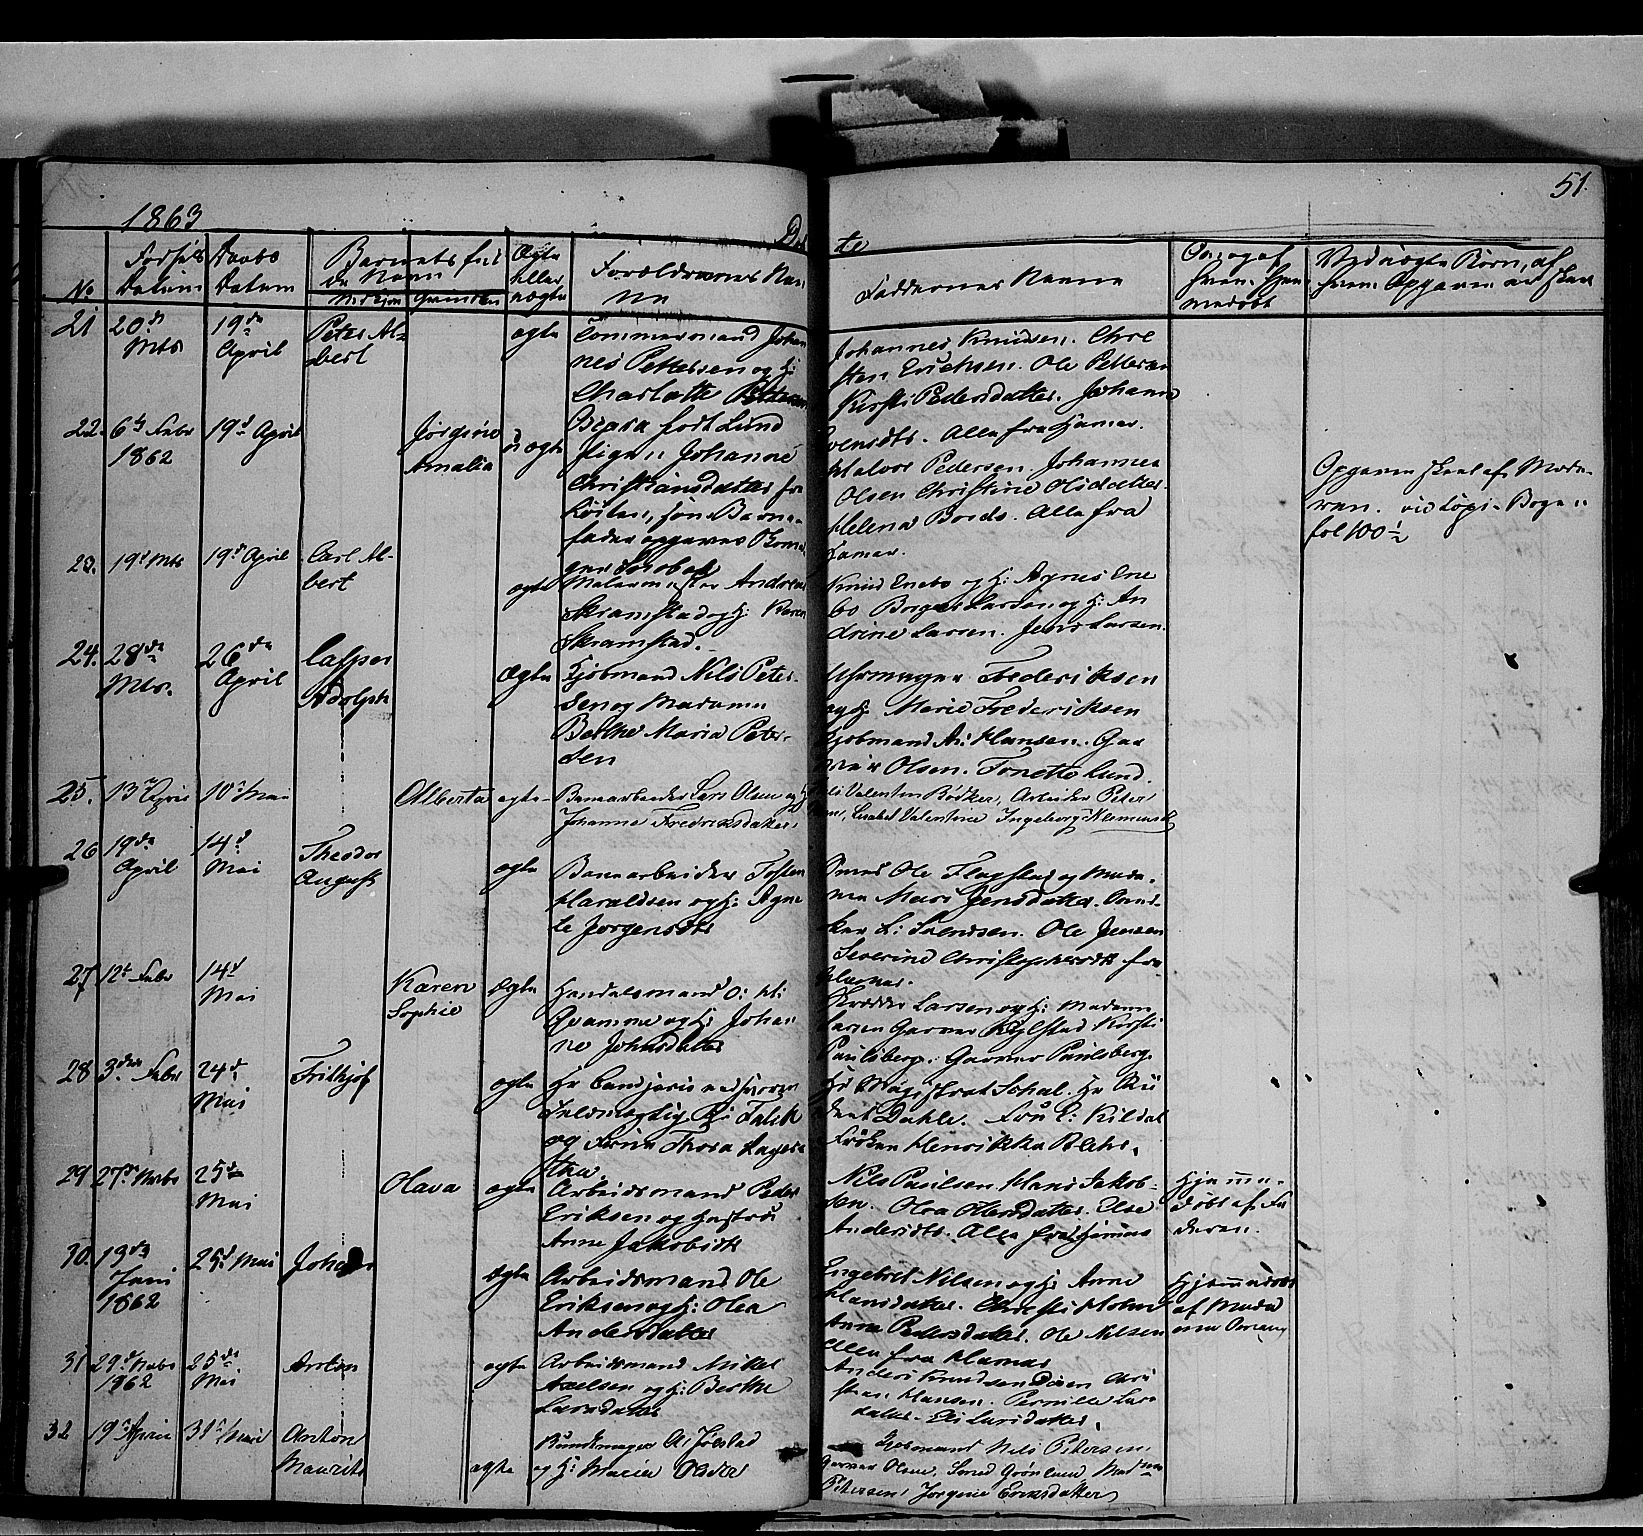 51.
1863
Døb
te
No
Fødsels Datum
Daabs Datum
Barnets fulde Navn
Drengen
Qvinden
Ægte eller uægte
Forældrenes Navne
Faddernes Navne
Om og af hvem hjemmedøbt
Ved uægte Børn, af hvem Opgaven er skeet
21
20de Mts
19de April
Peter Albert
ægte
Tømmermand Johannes Pettersen og H:
Charlotte Pettersen
Johannes Knudsen. Chresten Erichsen. Ole Pettersen
Kirsti Pedersdatter. Johanne
Svendsdtr. Alle fra Hamar.
22.
6te Febr 1862
19d April
Jørgine Amalia
uægte
født Lund
Pigen Johanne
Christiansdatter fra
Løiten, som Barnefader opgaves
Halvor Pedersen. Johannes
Olsen Christine Olsdatter.
Helena Bords. Alle fra
Hamar.
Opgaven skeet af Moderen. vid Copi-Bogen
fol 100 1/2
23.
19d Mts
19d April
Carl Albert
ægte
Malermester Andreas
Skramstad og H: Karen
Skramstad.
Knud Enebo og H: Agnes Enebo
Borger Larsen og H: Andrine Larsen. Jens Larsen.
24.
28de Mts.
26de April
Casper Adolph
Ægte
Kjøbmand Nils Petersen og Madame
Berthe Maria Petersen
Uhrmager Frederiksen
og H: Marie Frederiksen
Kjøbmand A: Hansen. Garver Olsen. Tonette Lund.
25.
13d April
10d Mai
Alberta
ægte
Banearbeider Lars Olsen og H:
Johanne Fredriksdatter
Valentin Bødker, Arbeider Peter
Lisabet Valentine Ingeborg Klemensdtr
26
19de April
14d Mai
Theodor August
ægte
Banearbeider Tosten
Haraldsen og H: Agnete Jørgensdtr
Smed Ole Flagstad og Madamen Mari Jensdatter.
L: Svendsen. Ole Jensen
Severine Christophersdtr fra
Hamar.
27
12t Febr
14d Mai
Karen Sophie
Ægte
Handelsmand O: H:
Qvamme og H: Johanne Johnsdatter
Skredder Larsen og H: Madame
Larsen Garver Kylstad Kirsti
Paulsberg. Garver Paulsberg
28
3die Febr
24d Mai
Frithjof
ægte
Hr Cand juris
Fuldmægtig R: Falck
og Frue Thora
Hr Magistrat Schal. Hr
Dahle. Fru E: Kildal
Frøken Henrikka Blehr.
29
27de Marts
25d Mai
Olava
ægte
Arbeidsmand Peder
Eriksen og Hustru
Anne Jakobsdtr
Nils Paulsen. Hans Jakobsen. Olea Olensdatter. Else
Andersdtr. Alle fra Hamar
Hjemmedøbt af Faderen.
30.
19de Juni 1862
25d Mai
Johan
ægte
Arbeidsmand Ole
Eriksen og H: Olea
Andersdatter
Engebret Nilsen og H: Anne
Hansdatter. Christi Holm
Anne Pedersdatter. Ole Nilsen
Alle fra Hamar
Hjemmedøbt
af Mads
31
29d Novbr 1862
25de Mai
Anton
ægte
Arbeidsmand Mikel
Axelsen og H: Berthe
Larsdatter
Anders Knudsen Christian Hansen. Pernille Larsdatter. Eli Larsdatter.
32
19d April
31d Mai
Anton Maurits
ægte
Bundtmager A: Jølstad
og H: Maria Olsdtr
Kjøbmand Nils Petersen
Garver Olsen, Svend Grønlund, Madame
Petersen, Jørgine Eriksdatter